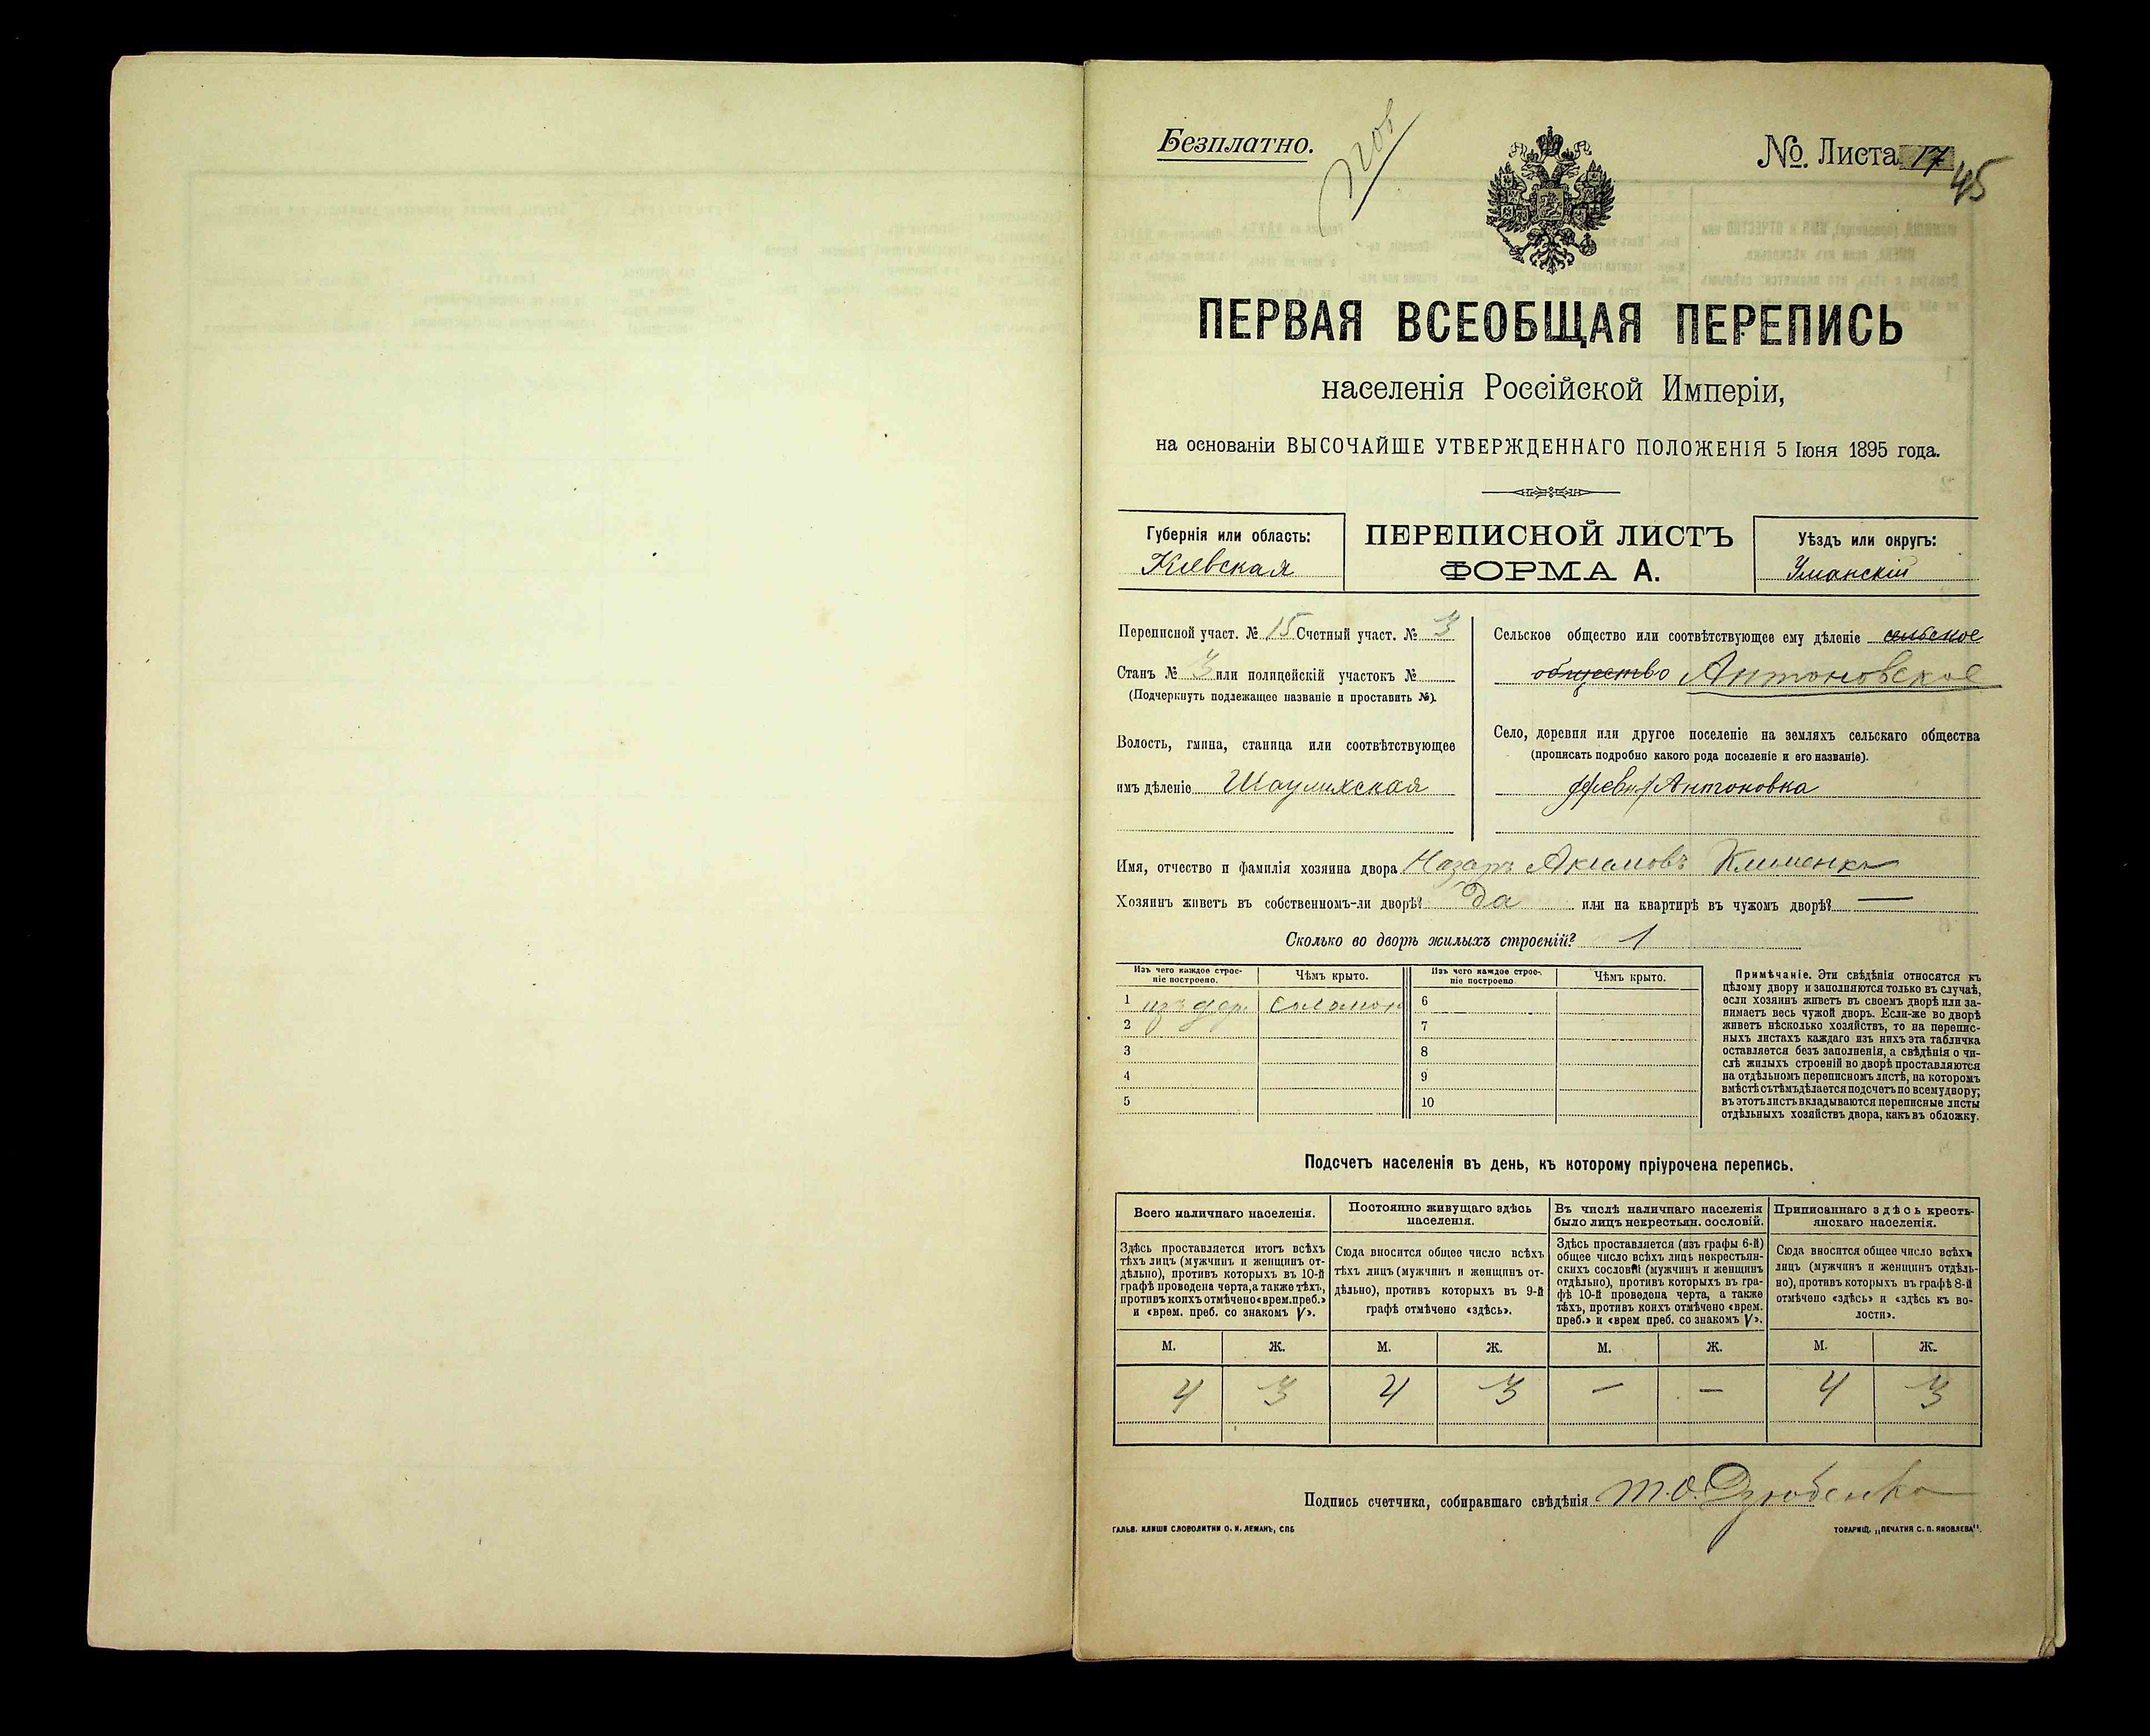 Безплатно.
№. Листа 17
45
ПЕРВАЯ ВСЕОБЩАЯ ПЕРЕПИСЬ
населенія Россійской Имперіи,
на основаніи ВЫСОЧАЙШЕ УТВЕРЖДЕННАГО ПОЛОЖЕНІЯ 5 Іюня 1895 года.
Губернія или область:
Кіевская
ПЕРЕПИСНОЙ ЛИСТЪ
ФОРМА А.
Уѣздъ или округъ:
Уманскій
Переписной участ. № 15 Счетный участ. № 3
Станъ № 3 или полицейскій участокъ №
(Подчеркнуть подлежащее названіе и проставить №).
Волость, гмина, станица или соотвѣтствующее
имъ дѣленіе Шаулихская
Сельское общество или соотвѣтствующее ему дѣленіе сельское
общество Антоновское
Село, деревня или другое поселеніе на земляхъ сельскаго общества
(прописать подробно какого рода поселеніе и его названіе).
Антоновка
Имя, отчество и фамилія хозяина двора Назаръ Акимовъ Клименко
Хозяинъ живетъ въ собственномъ-ли дворѣ? Да или на квартирѣ въ чужомъ дворѣ? —
Сколько во дворѣ жилыхъ строеній? 1
Изъ чего каждое строе-
ніе построено.
Чѣмъ крыто.
Изъ чего каждое строе-
ніе построено
Чѣмъ крыто.
1 изъ дер. соломою 6
2 7
3 8
4 9
5 10
Примѣчаніе. Эти свѣдѣнія относятся къ
цѣлому двору и заполняются только въ случаѣ,
если хозяинъ живетъ въ своемъ дворѣ или за-
нимаетъ весь чужой дворъ. Если-же во дворѣ
живетъ нѣсколько хозяйствъ, то на перепис-
ныхъ листахъ каждаго изъ нихъ эта табличка
оставляется безъ заполненія, а свѣдѣнія о чи-
слѣ жилыхъ строеній во дворѣ проставляются
на отдѣльномъ переписномъ листѣ, на которомъ
вмѣстѣ съ тѣмъ дѣлается подсчетъ по всему двору;
въ этотъ листъ вкладываются переписные листы
отдѣльныхъ хозяйствъ двора, какъ въ обложку.
Подсчетъ населенія въ день, къ которому пріурочена перепись.
Всего наличнаго населенія.
Здѣсь проставляется итогъ всѣхъ
тѣхъ лицъ (мужчинъ и женщинъ от-
дѣльно), противъ которыхъ въ 10-й
графѣ проведена черта, а также тѣхъ,
противъ коихъ отмѣчено «врем. преб.»
и «врем. преб. со знакомъ V».
Постоянно живущаго здѣсь
населенія.
Сюда вносится общее число всѣхъ
тѣхъ лицъ (мужчинъ и женщинъ от-
дѣльно), противъ которыхъ въ 9-й
графѣ отмѣчено «здѣсь».
Въ числѣ наличнаго населенія
было лицъ некрестьян. сословій.
Здѣсь проставляется (изъ графы 6-й)
общее число всѣхъ лицъ некрестьян-
скихъ сословій (мужчинъ и женщинъ
отдѣльно), противъ которыхъ въ гра-
фѣ 10-й проведена черта, а также
тѣхъ, противъ коихъ отмѣчено «врем.
преб.» и «врем преб. со знакомъ V».
Приписаннаго здѣсь кресть-
янскаго населенія.
Сюда вносится общее число всѣхъ
лицъ (мужчинъ и женщинъ отдѣль-
но), противъ которыхъ въ графѣ 8-й
отмѣчено «здѣсь» и «здѣсь къ во-
лости».
М. Ж. М. Ж. М. Ж. М. Ж.
4 3 4 3 — — 4 3
Подпись счетчика, собиравшаго свѣдѣнія Т. О. Дзюбенко
ГАЛЬВ. КЛИШЕ СЛОВОЛИТНИ О. И. ЛЕМАНЪ, СПБ
ТОВАРИЩ. „ПЕЧАТНЯ С. П. ЯКОВЛЕВА".